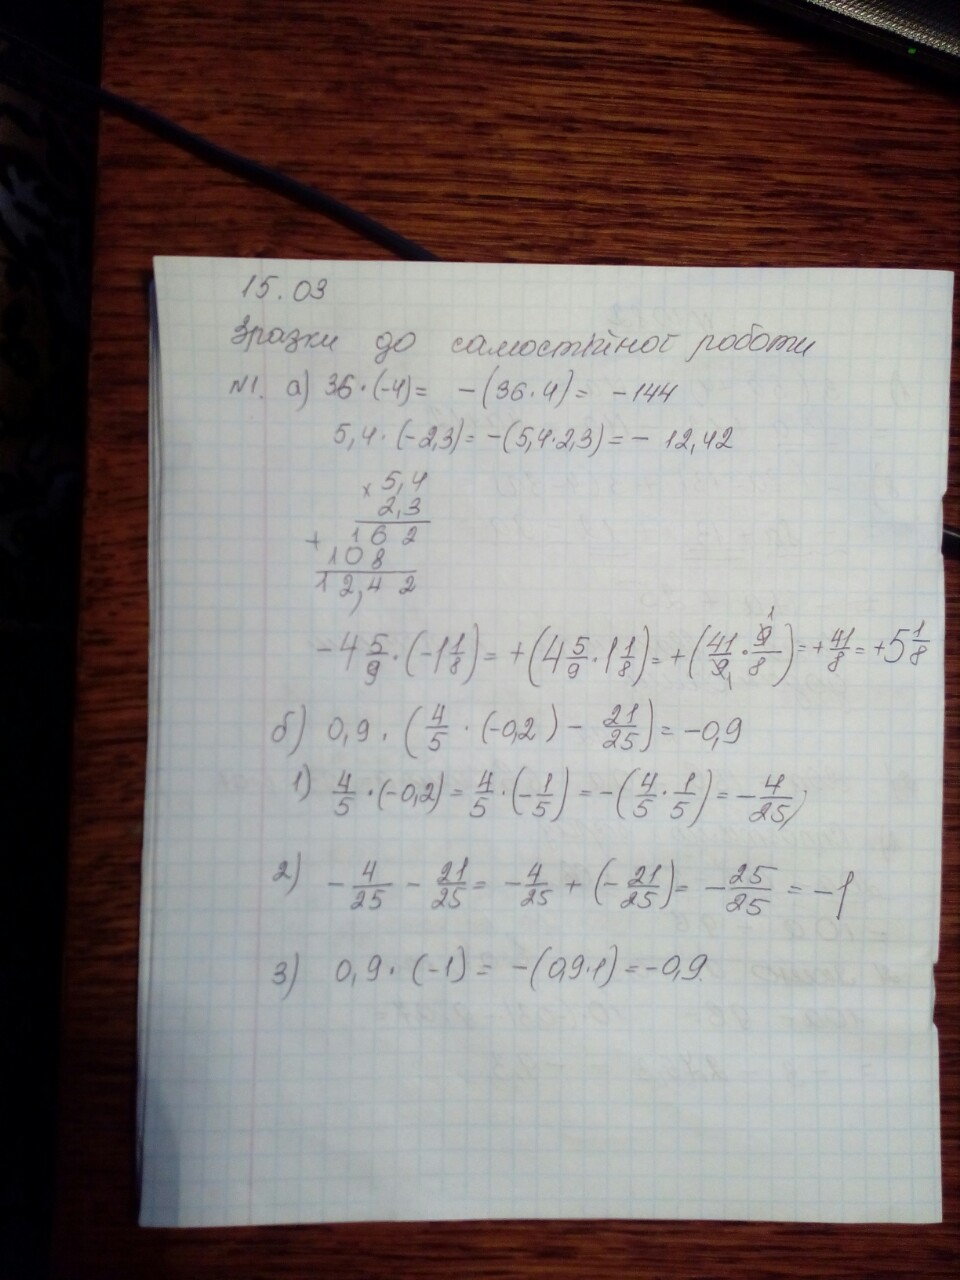 15.03
Зразки до самостійної роботи
№1. а) 36·(-4)= -(36·4)= -144
5,4·(-2,3)=-(5,4·2,3)=- 12,42
× 5,4
2,3
+ 1 6 2
1 0 8
1 2,4 2
-4 5/9·(-1 1/8)= +(4 5/9·1 1/8)= +(41/9 1·9 1/8)=+41/8=+5 1/8
б) 0,9·(4/5·(-0,2)- 21/25)=-0,9
1) 4/5·(-0,2)=4/5·(-1/5)=-(4/5·1/5)=-4/25;
2) -4/25-21/25= -4/25+(-21/25)= -25/25=-1
3) 0,9·(-1)= -(0,9·1)=-0,9.